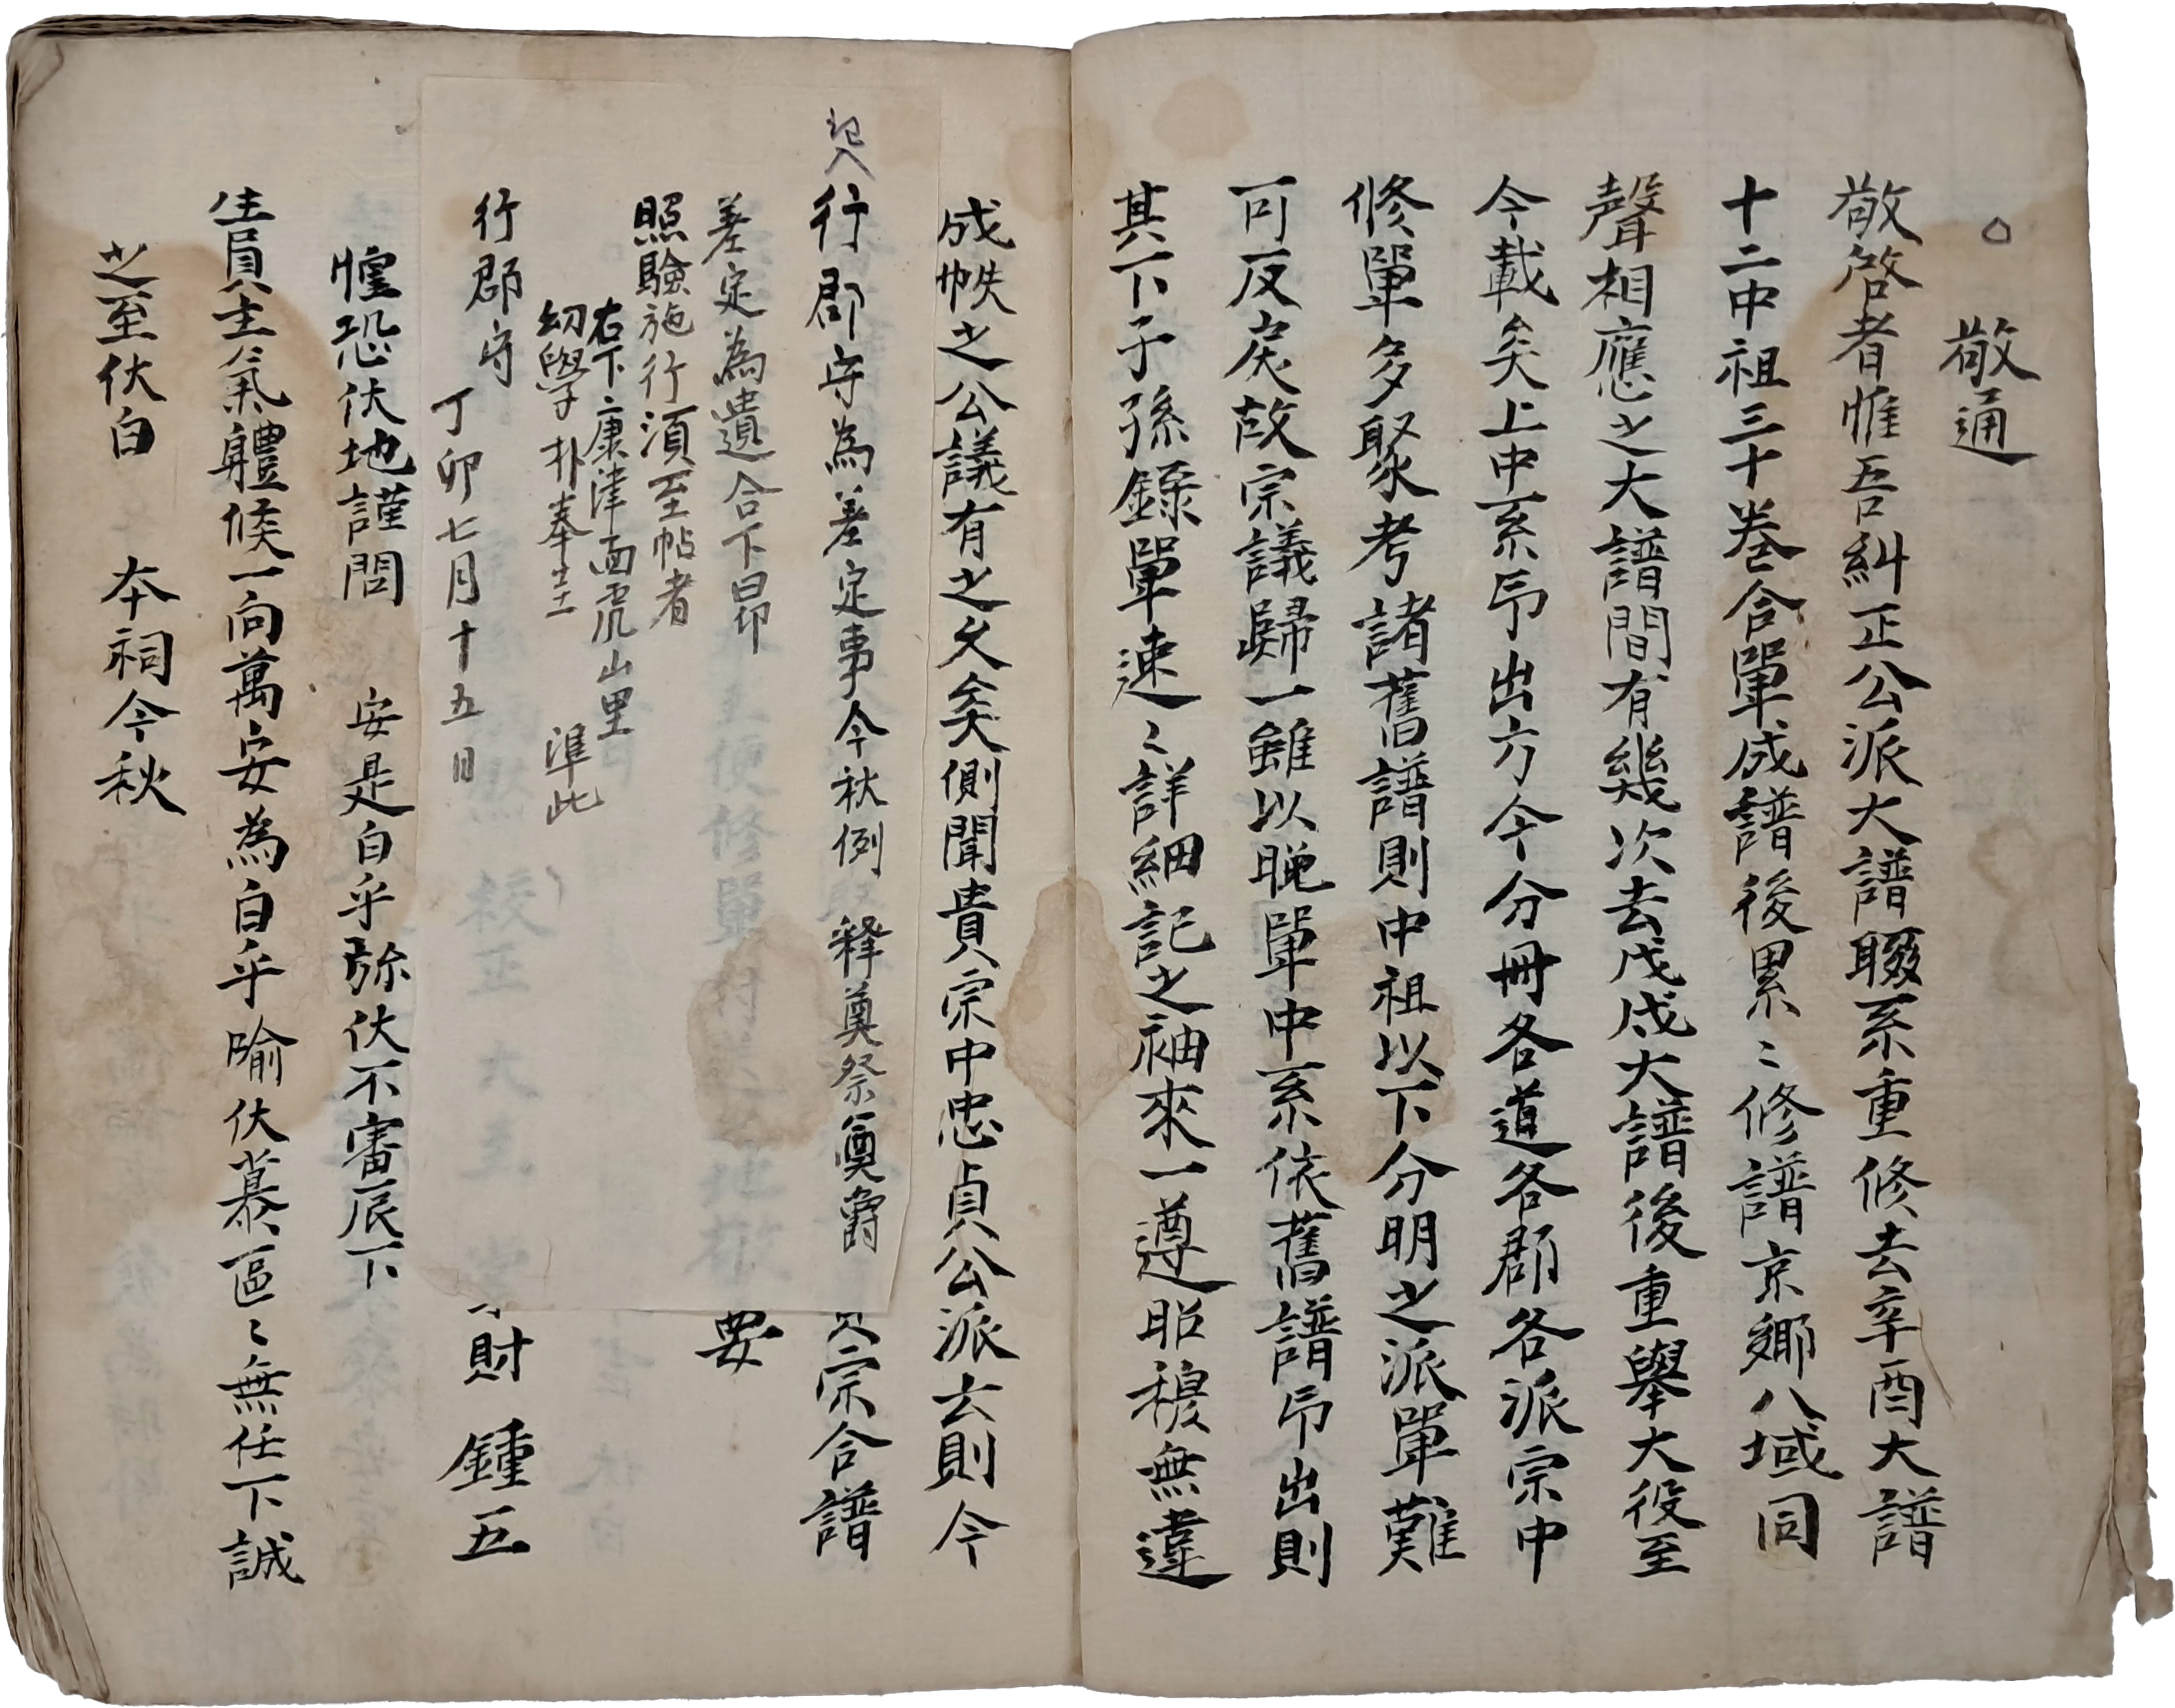 敬通
敬啓者惟吾糾正公派大譜聯系重修去辛酉大譜
十二中祖三十卷合單成譜後累〻修譜京鄉八域同
聲相應之大譜間有幾次去戊戌大譜後重擧大役至
今載矣上中系印出方今分冊各道各郡各派宗中
修單多聚考諸舊譜則中祖以下分明之派單難
可反戾故宗議歸一雖以晚單中系依舊譜印出則
其下子孫錄單速〻詳細記之袖來一遵昭穆無違
成帙之公議有之久矣側聞貴宗中忠貞公派云則今
宗合譜
要
財 鍾五
記入
行郡守為差定事今秋例 釋奠祭奠爵
差定為遣合下日卯
照驗施行須至帖者
右下康津面虎山里
幼學朴奉圭 準此
行郡守
丁卯七月十五日
惶恐伏地謹問 安是白乎弥伏不審辰下
生員主氣體候一向萬安為白乎喻伏慕區〻無任下誠
之至伏白 本祠今秋